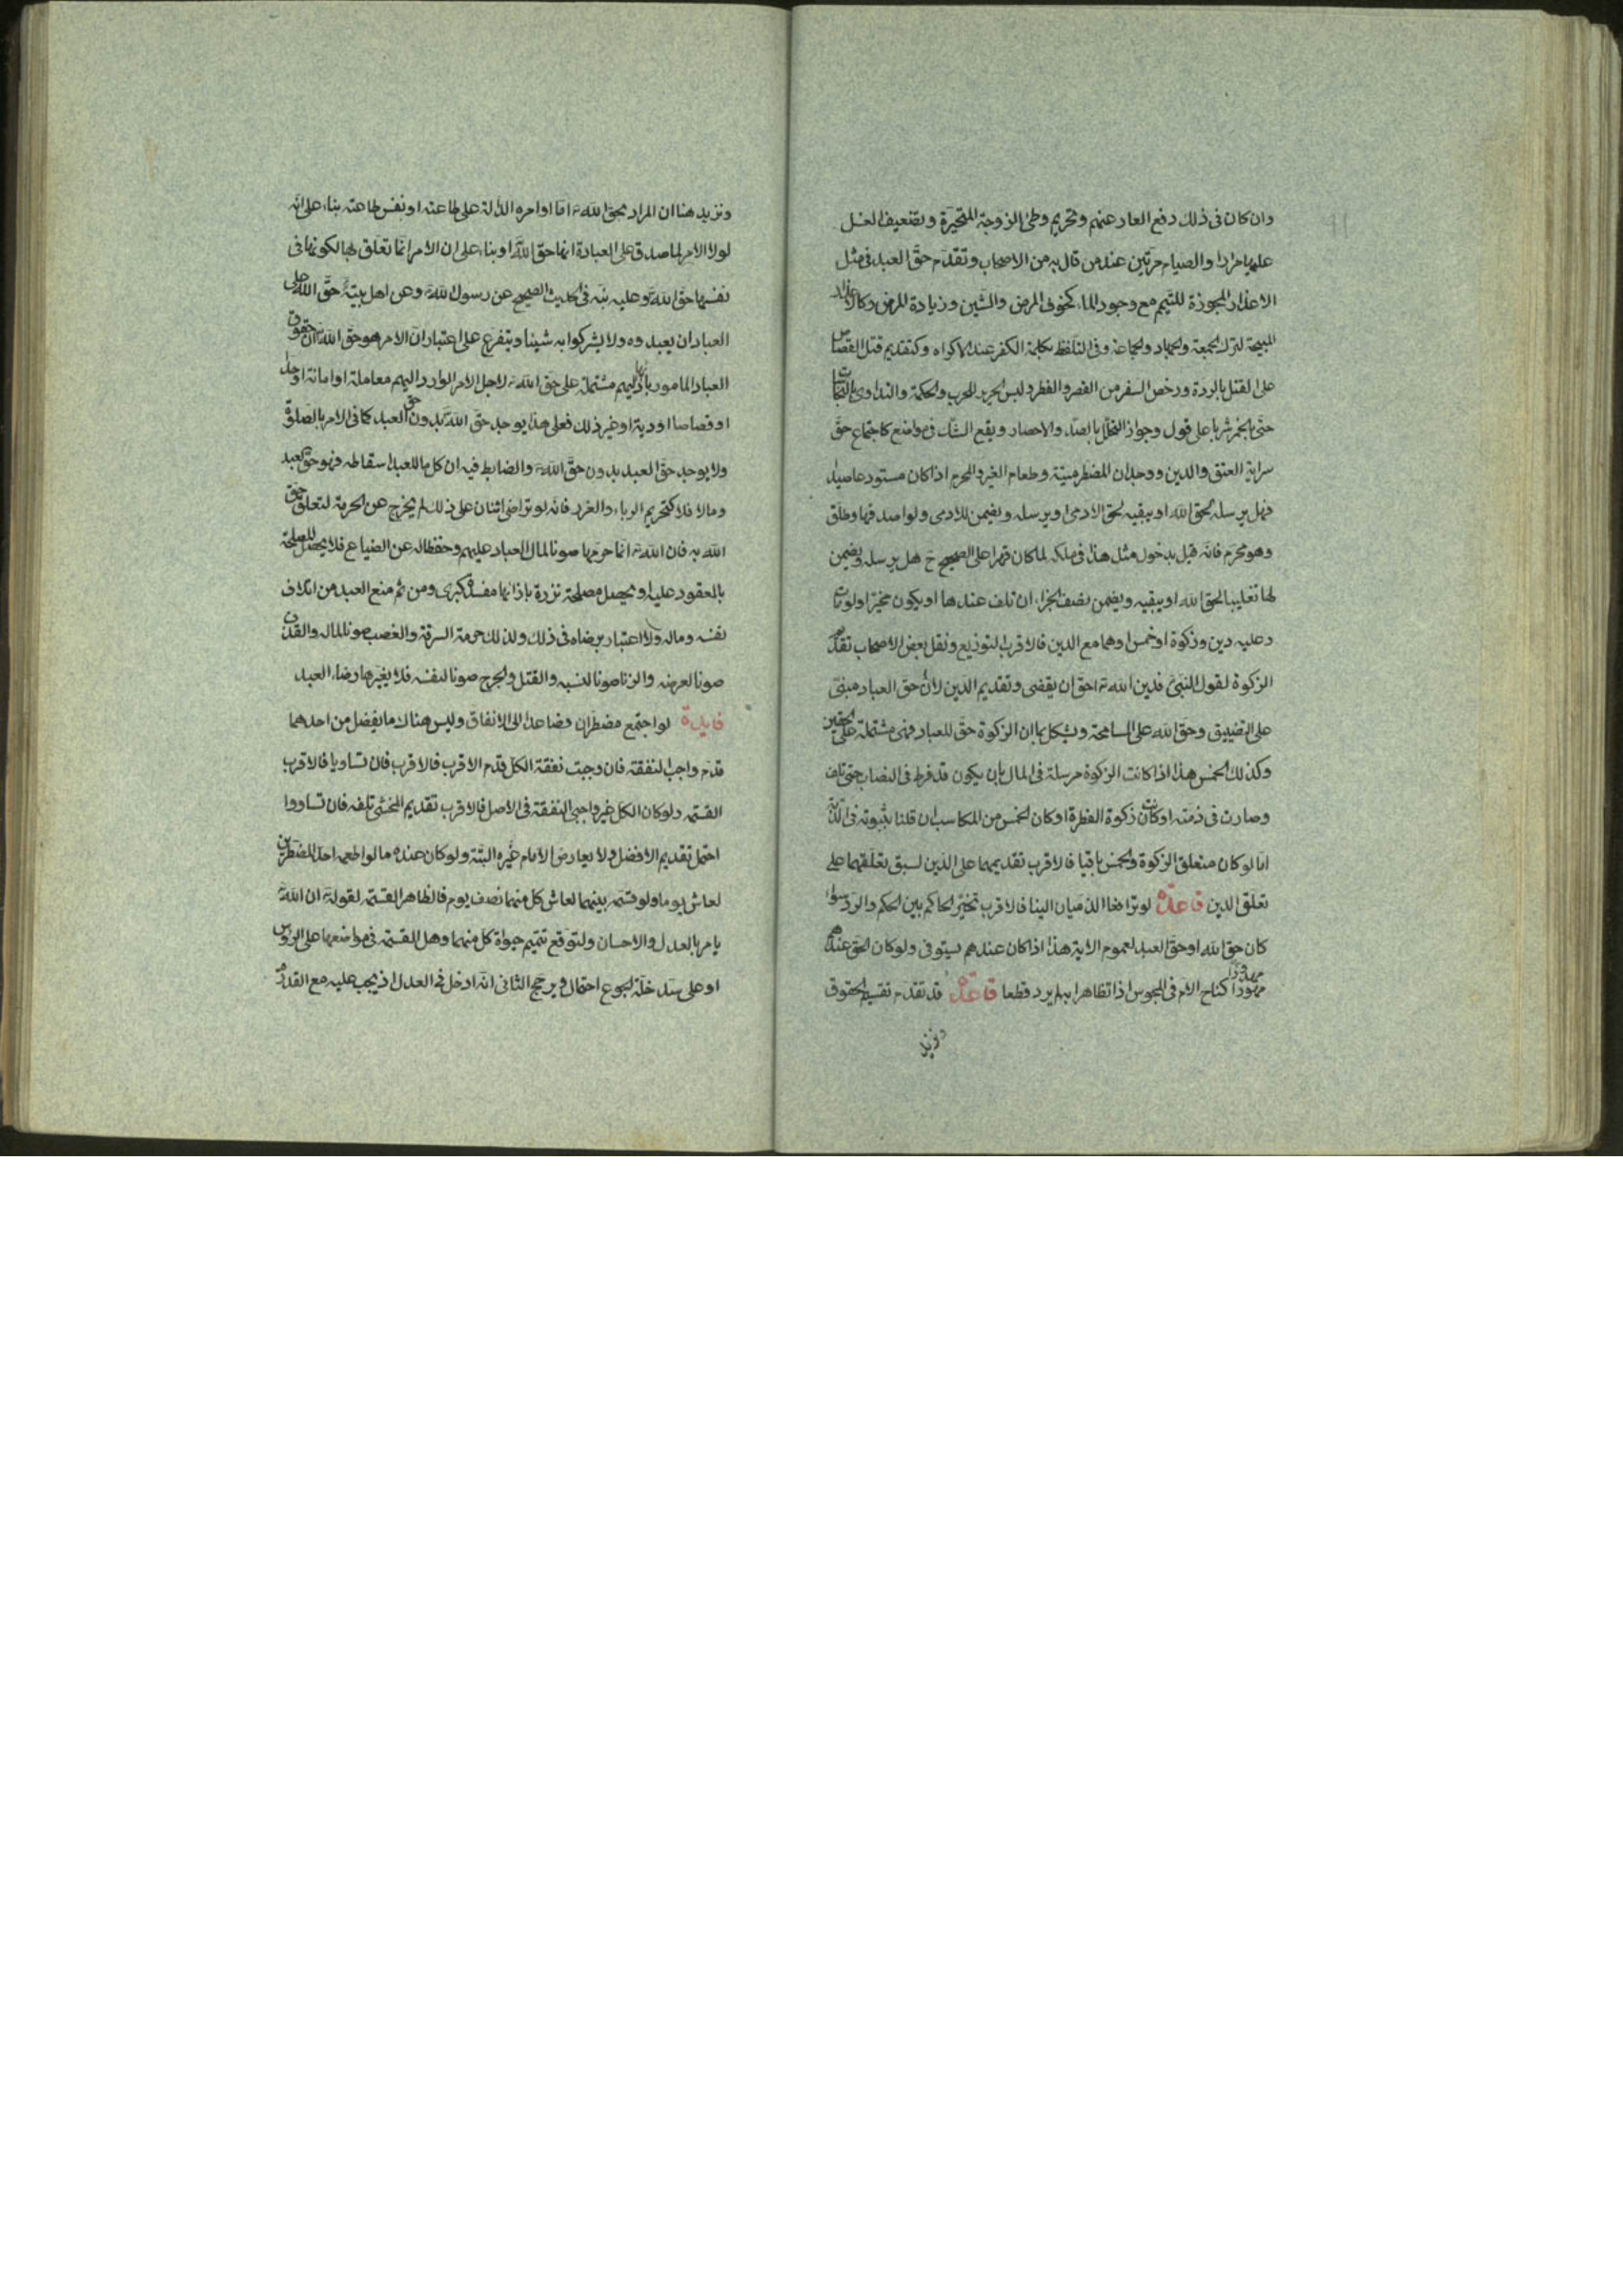 وان كان فى ذلك دفع العار عنهم وتحريم وطئ الزوجة المتحيرة وتضعيف الغسل
عليها مرارا والصيام مرتين عند من قال به من الاصحاب وتقدم حق العبد فى مثل
الاعذار المجوزة للتيمم مع وجود الماء كخوف المرض والشين وزيادة المرض وكالاعذار
المبيحة لترك الجمعة والجهاد والجماعة وفى التلفظ بكلمة الكفر عند الاكراه وكتقديم قتل القصاص
على القتل بالردة ورخص السفر من القصر والفطر ولبس الحرير للحرب والحكة والتداوى بالنجاسات
حتى بالخمر شربا على قول وجواز التحلل بالصد والاحصار ويقع الشك فى مواضع كاجتماع حق
سراية العتق والدين ووجدان المضطر ميتة وطعام الغير والمحرم اذا كان مستودعا صيدا
فهل يرسله لحق الله او يبقيه لحق الادمى او يرسله ويضمن للادمى ولو اصدقها وطلق
وهو محرم فانه قيل بدخول مثل هذا فى ملكه لما كان قهرا على الصحيح ح هل يرسله ويضمن
لها تغليبا لحق الله او يبقيه ويضمن نصف الجزاء ان تلف عندها او يكون مخيرا ولو مات
وعليه دين وزكوة او خمس او هما مع الدين فالاقرب التوزيع ونقل بعض الاصحاب تقدم
الزكوة لقول النبى فدين الله تع احق ان يقضى وتقديم الدين لان حق العباد مبنى
على التضييق وحق الله على المسامحة ويشكل بان الزكوة حق للعباد فهى مشتملة على الحقين
وكذلك الخمس هذا اذا كانت الزكوة مرسلة فى المال بان يكون قد فرط فى النصاب حتى تلف
وصارت فى ذمته او كانت زكوة الفطرة او كان الخمس من المكاسب ان قلنا بثبوته فى الذمة
اما لو كان متعلق الزكوة والخمس باقيا فالاقرب تقديمهما على الدين لسبق تعلقهما على
تعلق الدين قاعدة لو تراضا الذميان الينا فالاقرب تخير الحاكم بين الحكم والرد سواء
كان حق الله او حق العبد لعموم الاية هذا اذا كان عندهم يستوفى ولو كان الحق عندهم
مهدورا كنكاح الام فى المجوس اذا تظاهرا به لم يرد قطعا قاعدة قد تقدم تقسيط الحقوق
مهدورا
ونزيد
ونزيد هنا ان المراد بحق الله تع اما اوامره الدالة على طاعته او نفس طاعته بناء على انه
لولا الامر لما صدق على العبادة انها حق الله او بناء على ان الامر انما تعلق بها لكونها فى
نفسها حق الله تع وعليه نبه فى الحديث الصحيح عن رسول الله وعن اهل بيته حق الله على
العباد ان يعبدوه ولا يشركوا به شيئا ويتفرع على اعتبار ان الامر هو حق الله تع ان حقوق
العباد المامور بادائها اليهم مشتملة على حق الله تع لاجل الامر الوارد اليهم معاملة او امانة او حدا
او قصاصا او دية او غير ذلك فعلى هذا يوجد حق الله تع بدون حق العبد كما فى الامر بالصلوة
ولا يوجد حق العبد بدون حق الله تع والضابط فيه ان كل ما للعبد اسقاطه فهو حق العبد
ومالا فلا كتحريم الرباء والغرر فانه لو تراضى اثنان على ذلك لم يخرج عن الحرمة لتعلق حق
الله به فان الله تع انما حرمها صونا لمال العباد عليهم وحفظا له عن الضياع فلا يحصل المصلحة
بالمعقود عليه او يحصل مصلحة نزرة بازائها مفسدة كبرى ومن ثم منع العبد من اتلاف
نفسه وماله ولا اعتبار برضاه فى ذلك ولذلك حرمة السرقة والغصب صونا لماله والقذف
صونا لعرضه والزنا صونا لنسبه والقتل والجرح صونا لنفسه فلا يغيرها رضاء العبد
فايدة لو اجتمع مضطران فصاعدا الى الانفاق وليس هناك ما يفضل من احدهما
قدم واجب النفقة فان وجبت نفقة الكل قدم الاقرب فالاقرب فان تساويا فالاقرب
القسمة ولو كان الكل غير واجبى النفقة فى الاصل فالاقرب تقديم المخشى تلفه فان تساووا
احتمل تقديم الافضل ولا يعارض الامام غيره البتة ولو كان عنده ما لو اطعمه احد المضطرين
لعاش يوما ولو قسمه بينهما لعاش كل منهما نصف يوم فالظاهر القسمة لقوله تع ان الله
يامر بالعدل والاحسان ولتوقع تتميم حيوة كل منهما وهل القسمة فى مواضعها على الروس
او على سد خلة الجوع احتمال ويرجح الثانى انه ادخل فى العدل اذ يجب عليه مع القدرة